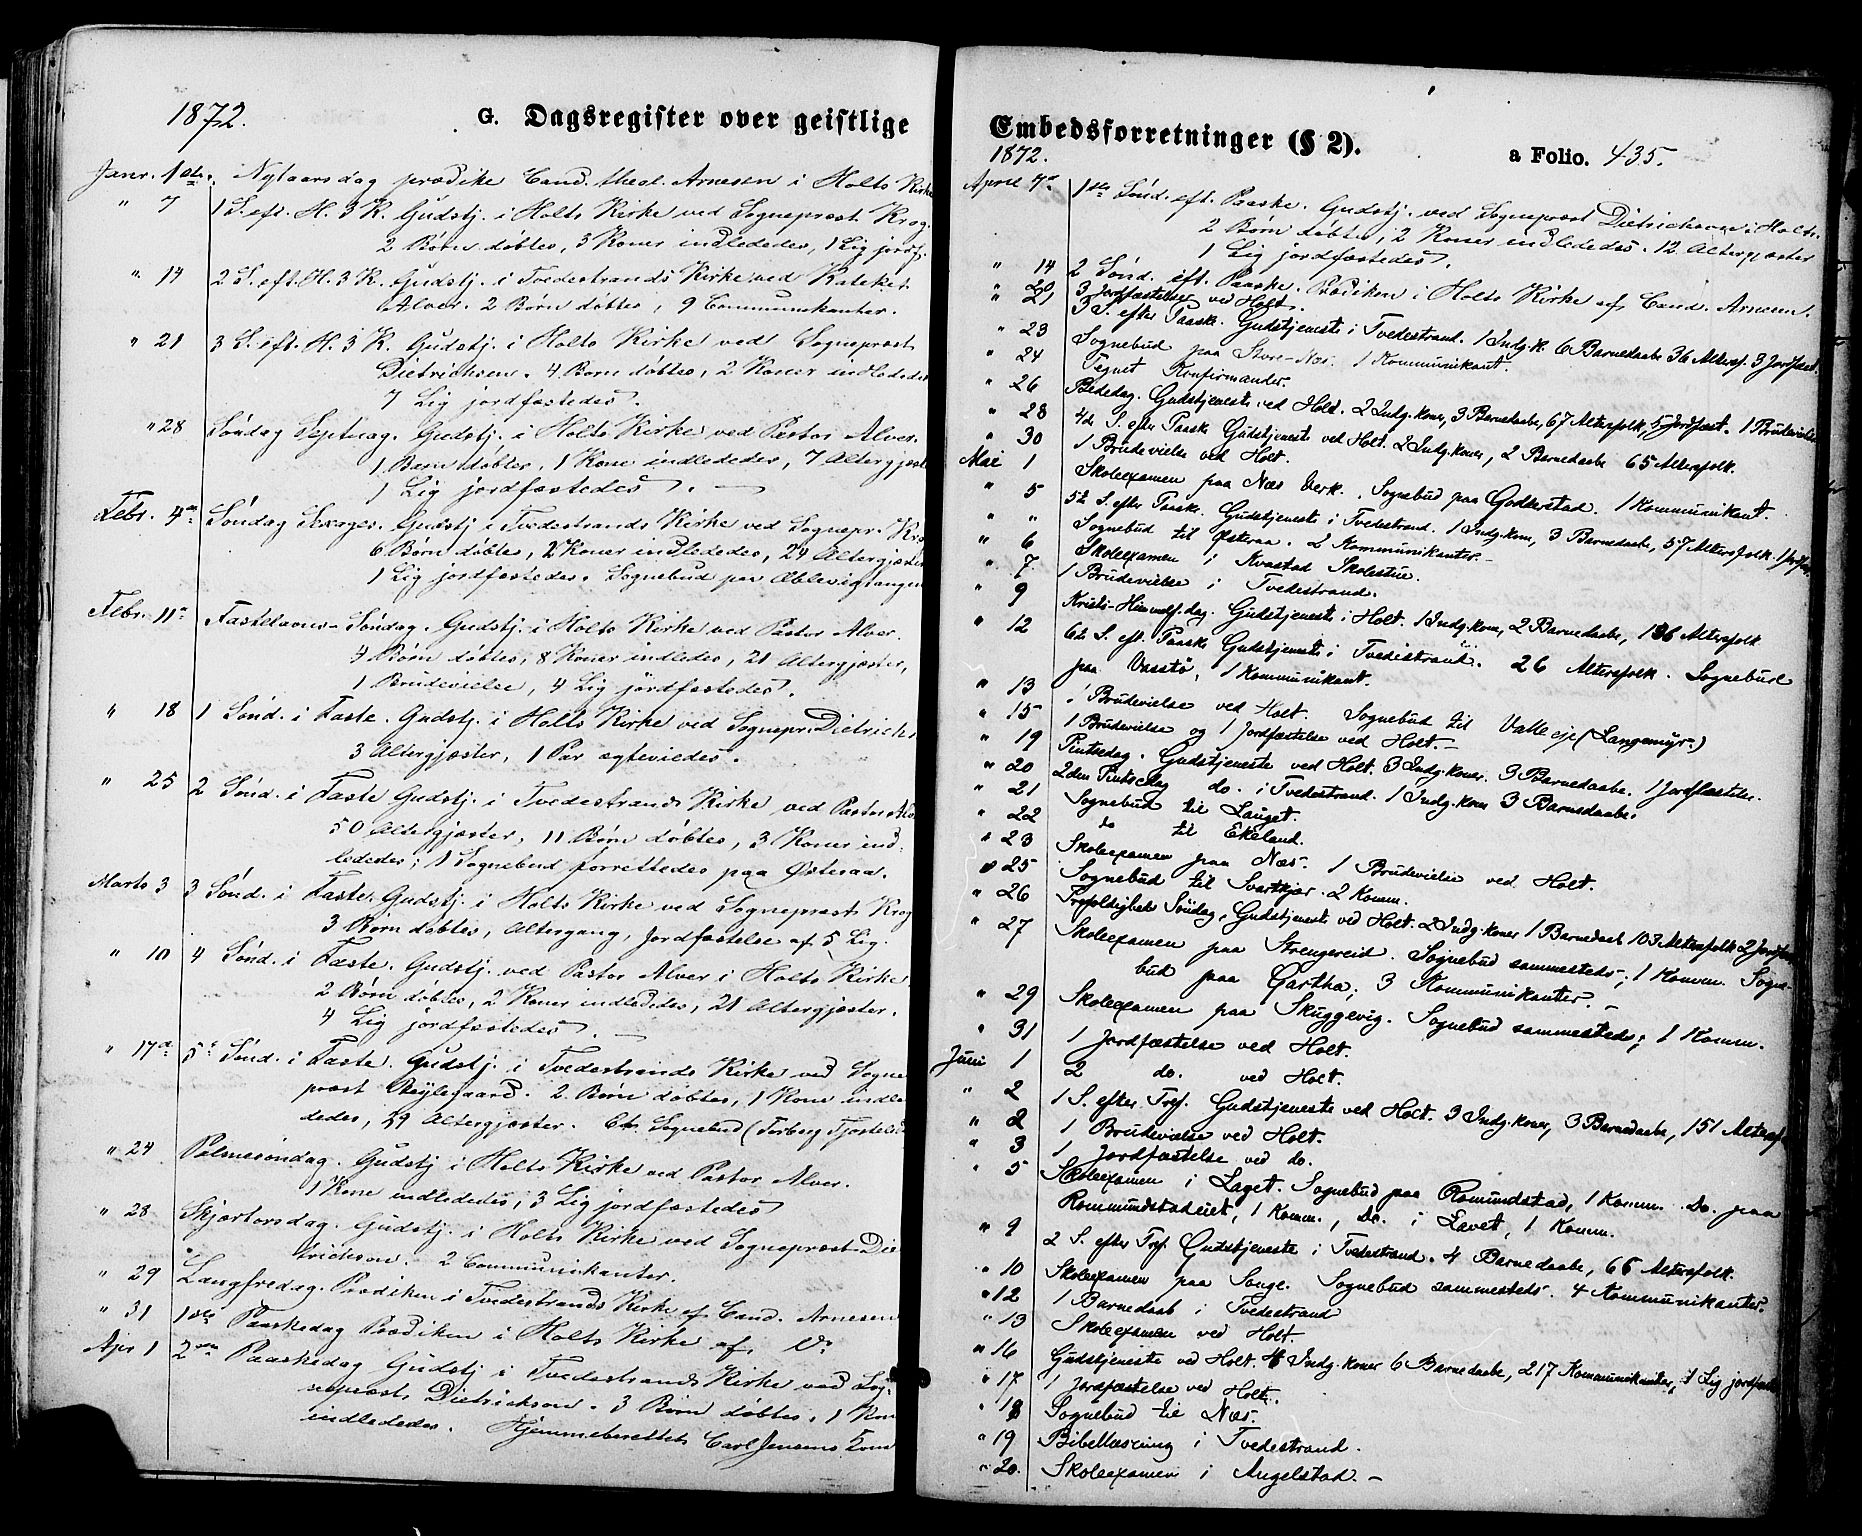 1872.
G. Dagsregister over geistlige
Janr. 1ste. Nytaarsdag prædike Cand. theol. Arnesen i Holts Kirke
" 7 1 S. eft. H. 3 K. Gudstj. i Holts Kirke ved Sognepræst Krog.
2 Børn døbtes, 3 Koner indlededes, 1 Lig jordf.
" 14 2 S. eft. H. 3 K. Gudstj. i Tvedestrands Kirke ved Kateket
Alver. 2 Børn døbtes, 9 Communikanter.
" 21 3 S. eft. H. 3 K. Gudstj. i Holts Kirke ved Sognepræst
Dietrichsen. 4 Børn døbtes, 2 Koner indlededes
7 Lig jordfæstedes.
" 28 Søndag Septuag. Gudstj. i Holts Kirke ved Pastor Alver.
1 Barn døbtes, 1 Kone indlededes, 7 Altergjæst
1 Lig jordfæstedes. —
Febr. 4de Søndag Sexages. Gudstj. i Tvedestrands Kirke ved Sognepr. Kro
6 Børn døbtes, 2 Koner indlededes, 24 Altergjæster
1 Lig jordfæstedes. Sognebud paa Æblevigtangen
Febr. 11te Fastelavns-Søndag. Gudstj. i Holts Kirke ved Pastor Alver.
4 Børn døbtes, 8 Koner indledes, 21 Altergjæster,
1 Brudevielse, 4 Lig jordfæstedes.
" 18 1 Sønd. i Faste. Gudstj. i Holts Kirke ved Sognepr. Dietrichs
3 Altergjæster, 1 Par ægteviedes.
" 25 2 Sønd. i Faste Gudstj. i Tvedestrands Kirke ved Pastor Al
50 Altergjæster, 11 Børn døbtes, 3 Koner ind-
lededes; 1 Sognebud forrettedes paa Østeraa.
Marts 3 3 Sønd. i Faste. Gudstj. i Holts Kirke ved Sognepræst Krog
3 Børn døbtes, Altergang, Jordfæstelse af 5 Lig.
" 10 4 Sønd. i Faste. Gudstj. ved Pastor Alver i Holts Kirke
2 Børn døbtes, 2 Koner indlededes, 21 Altergjæster.
4 Lig jordfæstedes. —
" 17de 5te Sønd. i Faste. Gudstj. i Tvedestrands Kirke ved Sogne
præst Bøylegaard. 2 Børn døbtes, 1 Kone indle
dedes, 29 Altergjæster. Sognebud (
" 24 Palmesøndag. Gudstj. i Holts Kirke ved Pastor Alver.
1 Kone indlededes, 3 Lig jordfæstedes
" 28 Skjærtorsdag. Gudstj. i Holts Kirke ved Sognepræst Die
trichson. 2 Communikanter.
" 29 Langfredag. Prædiken i Tvedestrands Kirke af Cand. Arnesen
" 31 1ste Paaskedag Prædiken i Holts Kirke af Do
Apr 1 2den Paaskedag Gudstj. i Tvedestrands Kirke ved Sog
nepræst Dietrichson. 3 Børn døbtes, 1 Kon
indlededes. Hjemmeberettet Carl Jensens Kone
Embedsforretninger (§ 2).
1872.
a Folio. 435.
April 7de 1ste Sønd. eft. Paaske. Gudstj. ved Sognepræst Dietrichson i Holts.
2 Børn døbtes, 2 Koner indlededes. 12 Altergjæster
1 Lig jordfæstedes.
" 14 2 Sønd. eft. Paaske. Prædiken i Holts Kirke af Cand. Arnesen.
" 20 3 Jordfæstelser ved Holt.
" 21 3 S. efter Paaske. Gudstjeneste i Tvedestrand. 1 Indg.k. 6 Barnedaabe 36 Altersf. 3 Jordfæst.
" 23 Sognebud paa Store-Næs. 1 Kommunikant.
" 24 Tegnet Konfirmander.
" 26 Bededag. Gudstjeneste ved Holt. 2 Indg.koner, 3 Barnedaabe, 67 Altersfolk, 5 Jordfæst. 1 Brudevielse
" 28 4de S. efter Paaske Gudstjeneste ved Holt. 2 Indg.koner, 2 Barnedaabe 65 Altersfolk.
" 30 1 Brudevielse ved Holt.
Mai 1 Skoleexamen paa Næs Værk. Sognebud paa Goderstad. 1 Kommunikant.
" 5 5te S. efter Paask. Gudstjeneste i Tvedestrand. 1 Indg.kone, 3 Barnedaabe, 57 Altersfolk. 1 Jordfæs.
" " Sognebud til Østeraa. 2 Kommunikanter. —
" 6 Skoleexamen i Kvastad Skolestue.
" 7. 1 Brudevielse i Tvedestrand.
" 9 Kristi-Himmelf.dag. Gudstjeneste i Holt. 1 Indg.kone, 2 Barnedaabe, 136 Altersfolk
" 12 6te S. eft. Paaske Gudstjeneste i Tvedestrand. 26 Altersfolk. Sognebud
paa Vasstø, 1 Kommunikant.
" 13 1 Brudevielse ved Holt. Sognebud til Valle eje (Langemyr.)
" 15 1 Brudevielse og 1 Jordfæstelse ved Holt. —
" 19 Pintsedag. Gudstjeneste ved Holt. 3 Indg.koner. 3 Barnedaabe. 1 Jordfæstelse.
" 20 2den Pintsedag do. i Tvedestrand. 1 Indg.kone 3 Barnedaabe.
" 21 Sognebud til Lauget.
" 22 do til Ekeland.
" 23 Skoleexamen paa Næs. 1 Brudevielse ved Holt.
" 25 Sognebud til Svartkjær. 2 Komm.
" 26 Trefoldigheds Søndag, Gudstjeneste ved Holt. 2 Indg.koner 1 Barnedaab 103 Altersfolk 2 Jordfæ
" 27 Skoleexamen paa Strengereid. Sognebud sammesteds; 1 Komm. Sogne-
bud paa Gartha; 3 Kommunikanter. —
" 29 Skoleexamen paa Skuggevig. Sognebud sammesteds; 1 Komm.
" 31 1 Jordfæstelse ved Holt.
Juni 1 2 do. ved Holt.
" 2 1 S. efter Tref. Gudstjeneste ved Holt. 3 Indg.koner, 3 Barnedaabe, 151 Altersf
" 2 1 Brudevielse ved Holt.
" 3 1 Jordfæstelse ved do.
" 5 Skoleexamen i Laget. Sognebud paa Romundstad, 1 Komm. Do. paa
Rommundstadeiet, 1 Komm., Do. i Lavet, 1 Komm.
" 9 2 S. efter Tref. Gudstjeneste i Tvedestrand. 4 Barnedaabe, 66 Altersfolk.
" 10 Skoleexamen paa Songe. Sognebud sammesteds. 4 Kommunikanter.
" 12 1 Barnedaab i Tvedestrand
" 13 Skoleexamen ved Holt.
" 16 Gudstjeneste ved Holt. 4 Indg.koner 6 Barnedaabe, 217 Kommunikanter, 1 Lig jordfæst
" 17 1 Jordfæstelse ved Holt.
" 18 Sognebud til Næs.
" 19 Bibellæsning i Tvedestrand.
" 20. Skoleexamen i Angelstad. —